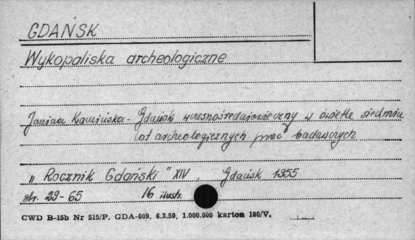 GDAŃSK
Wykopaliska archeologiczne
Janina Kamińska - Gdańsk wczesnośredniowieczny w świetle siedmiu
lat archeologicznych prac badawczych
"Rocznik Gdański" XIV, Gdańsk 1955
str. 29-65 16 ilustr.
CWD B-15b Nr 515/P. GDA-809. 6.3.59. 1.000.000 kartom 180/V.